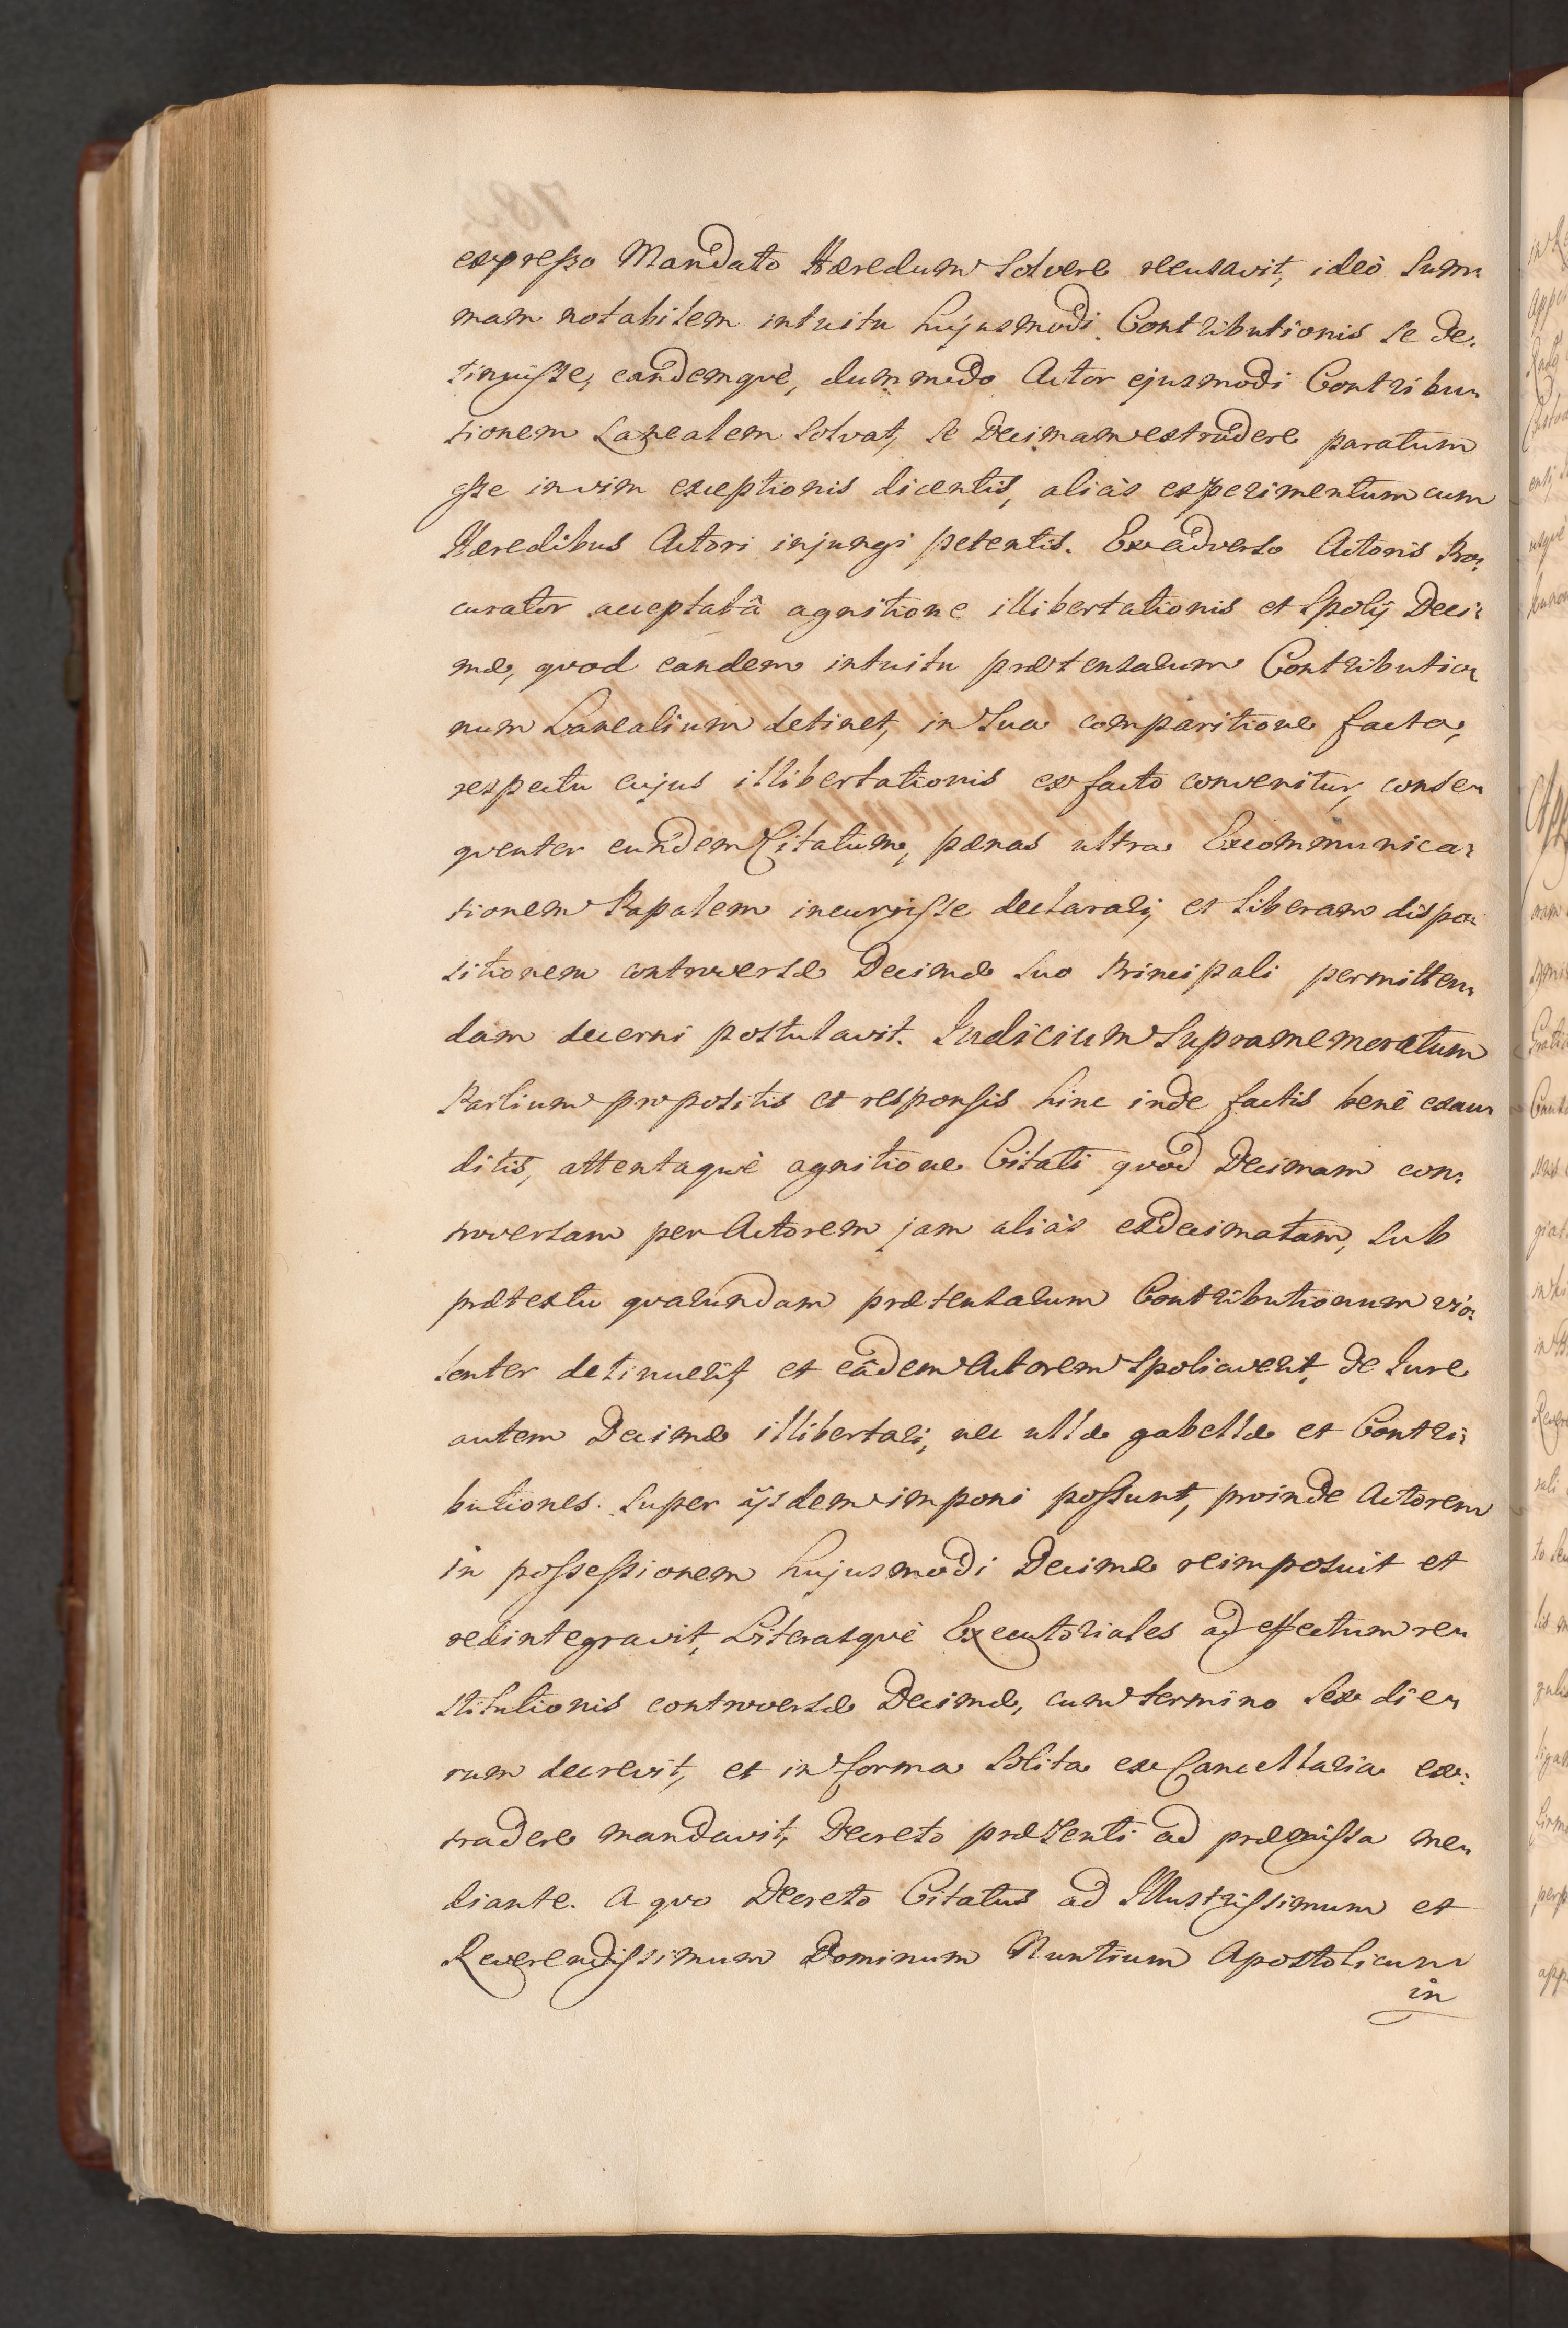 expresso Mandato Hæredum Solvere recusavit, ideò Sum:
mam notabilem intuitu hujusmodi Contributionis se de:
tinuisse, eandemquè, dummodo Actor ejusmodi Contribu:
tionem Lanealem Solvat, se Decimam extradere paratum
esse in vim exceptionis dicentis, aliàs experimentum cum
Hæredibus Actori injungi petentis. Ex adverso Actoris Pro:
curator acceptatâ agnitione illibertationis et Spolij Deci:
mæ, quod eandem intuitu prætensarum Contributio:
num Lanealium detinet, in Sua comparitione facta,
respectu cujus illibertationis ex facto convenitur, conse:
quenter eundem Citatum, pænas ultra Excommunica:
tionem Papalem incurrisse declarari, et liberam dispo:
sitionem controversæ Decimæ Suo Principali permitten:
dam decerni postulavit. Judicium Supramemoratum
Partium propositis et responsis hinc inde factis benè exau:
ditis, attentaquè agnitione Citati quod Decimam con:
troversam per Actorem jam aliàs exdecimatam, sub
prætextu quarundam prætensarum Contributionum vio:
lenter detinuerit, et eâdem Actorem Spoliaverit, de Jure
autem Decimæ illibertari, nec ullæ gabellæ et Contri:
butiones super ijsdem imponi possunt, proinde Actorem
in possessionem hujusmodi Decimæ reimposuit et
redintegravit, Literasquè Executoriales ad effectum re:
stitutionis controversæ Decimæ, cum termino Sex die:
rum decrevit, et in forma Solita ex Cancellaria ex:
tradere mandavit, Decreto præsenti ad præmissa me:
diante. A quo Decreto Citatus ad Illustrissimum et
Reverendissimum Dominum Nuntium Apostolicum
in